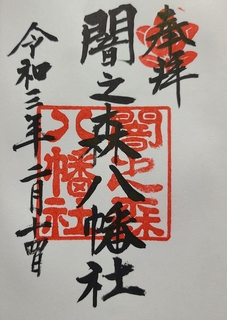 奉拝
闇之森八幡社
令和三年二月十四日
闇之森
八幡社